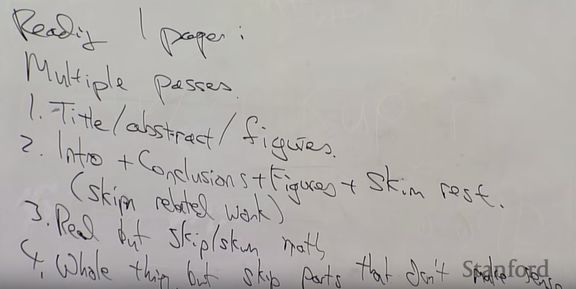 Reading 1 paper:
Multiple passes.
1. Title/abstract/figures.
2. Intro + Conclusions + Figures + Skim rest.
(skim related work)
3. Read but skip/skim math
4. Whole thing but skip parts that don't make sense
Stanford